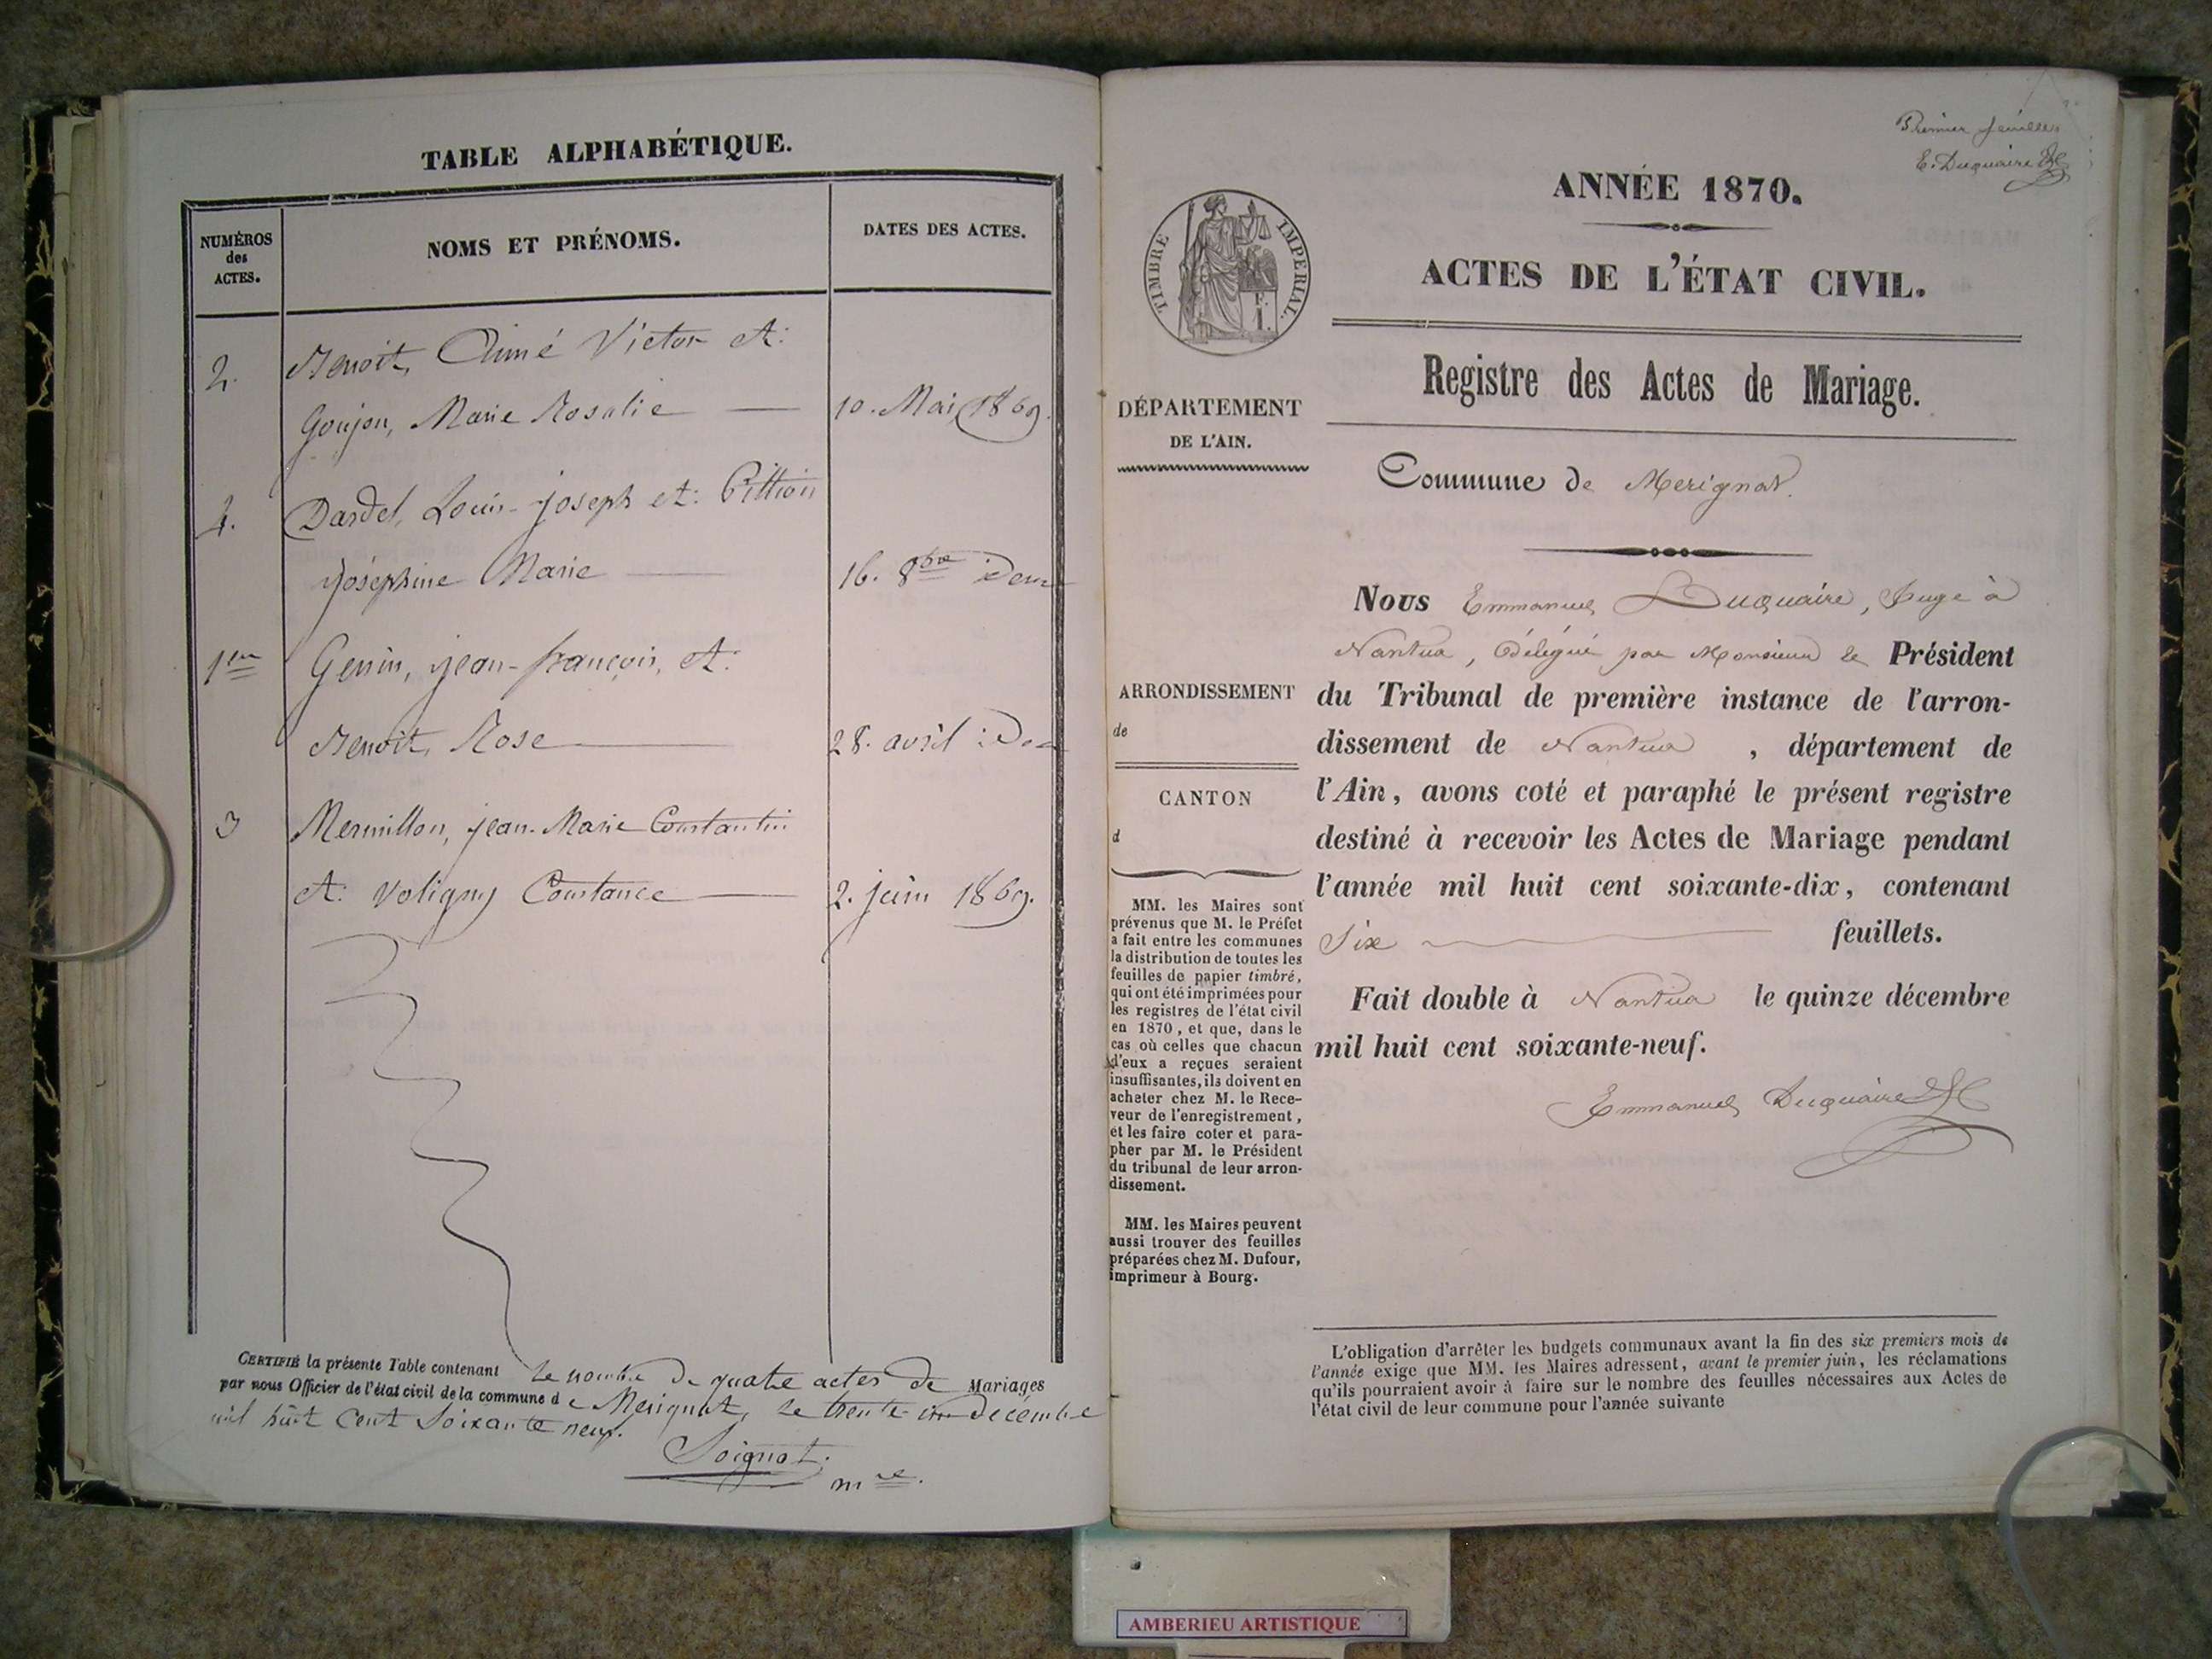 TABLE ALPHABÉTIQUE.
NUMÉROS
des
ACTES.
NOMS ET PRÉNOMS.
DATES DES ACTES.
2. Benoit, Aimé Victor et:
Goujon, Marie Rosalie — 10. Mai 1869.
4. Dardel, Louis-joseph et: Pittion
joséphine Marie — 16. 8bre idem
1er Genin, jean-françois, et:
Benoit, Rose — 28. avril idem
3 Mermillon, jean-Marie Constantin
et: Voligny Constance — 2. juin 1869.
CERTIFIÉ la présente Table contenant le nombre de quatre actes de Mariages
par nous Officier de l'état civil de la commune de Merignat, le trente-un décembre
mil huit cent soixante neuf.
Soignat.
mre.
Premier feuillet
E. Duquaire
ANNÉE 1870.
TIMBRE IMPERIAL.
ACTES DE L'ÉTAT CIVIL.
Registre des Actes de Mariage.
DÉPARTEMENT
DE L'AIN.
Commune de Merignat.
ARRONDISSEMENT
de
CANTON
d
MM. les Maires sont
prévenus que M. le Préfet
a fait entre les communes
la distribution de toutes les
feuilles de papier timbré,
qui ont été imprimées pour
les registres de l'état civil
en 1870, et que, dans le
cas où celles que chacun
d'eux a reçues seraient
insuffisantes, ils doivent en
acheter chez M. le Rece-
veur de l'enregistrement,
et les faire coter et para-
pher par M. le Président
du tribunal de leur arron-
dissement.
MM. les Maires peuvent
aussi trouver des feuilles
préparées chez M. Dufour,
imprimeur à Bourg.
Nous Emmanuel Duquaire, Juge à
Nantua, délégué par Monsieur le Président
du Tribunal de première instance de l'arron-
dissement de Nantua, département de
l'Ain, avons coté et paraphé le présent registre
destiné à recevoir les Actes de Mariage pendant
l'année mil huit cent soixante-dix, contenant
Six feuillets.
Fait double à Nantua le quinze décembre
mil huit cent soixante-neuf.
Emmanuel Duquaire
L'obligation d'arrêter les budgets communaux avant la fin des six premiers mois de
l'année exige que MM. les Maires adressent, avant le premier juin, les réclamations
qu'ils pourraient avoir à faire sur le nombre des feuilles nécessaires aux Actes de
l'état civil de leur commune pour l'année suivante
AMBERIEU ARTISTIQUE